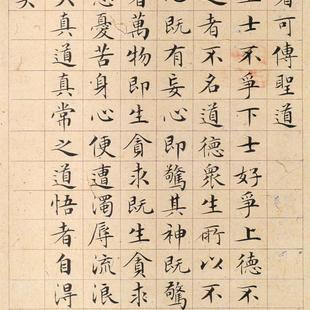 者可傳聖道
士不爭下士好爭上德不
之者不名道德眾生所以不
心既有妄心即驚其神既驚
著萬物即生貪求既生貪求
憂苦身心便遭濁辱流浪
真道真常之道悟者自得
矣